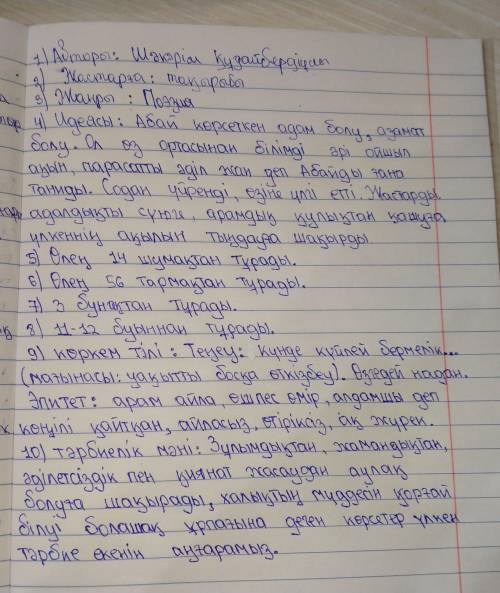 1) Авторы: Шәкәрім Құдайбердіұлы
2) Жастарға: тақырыбы
3) Жанры: Поэзия
4) Идеясы: Абай көрсеткен адам болу, азамат
болу. Ол өз ортасынан білімді әрі ойшыл
ақын, парасатты әділ жан деп Абайды ғана
таниды. Содан үйренді, өзіне үлгі етті. Жастарды
адалдықты сүюге, арамдық құлықтан қашуға
үлкеннің ақылын тыңдауға шақырды
5) Өлең 14 шумақтан тұрады.
6) Өлең 56 тармақтан тұрады.
7) 3 бунақтан тұрады.
8) 11-12 буыннан тұрады.
9) көркем тілі: Теңеу: күнде күйлей бермелік...
(мағынасы: уақытты босқа өткізбеу). Өгедей надан.
Эпитет: арам айла, өшпес өмір, алдамшы деп
көңілі қайтқан, айласыз, өтіріксіз, ақ жүрек.
10) тәрбиелік мәні: Зұлымдықтан, жамандықтан,
әділетсіздік пен қиянат жасаудан аулақ
болуға шақырады, халықтың мүддесін қорғай
білуі болашақ ұрпағына деген көрсетер үлкен
тәрбие екенін аңғарамыз.